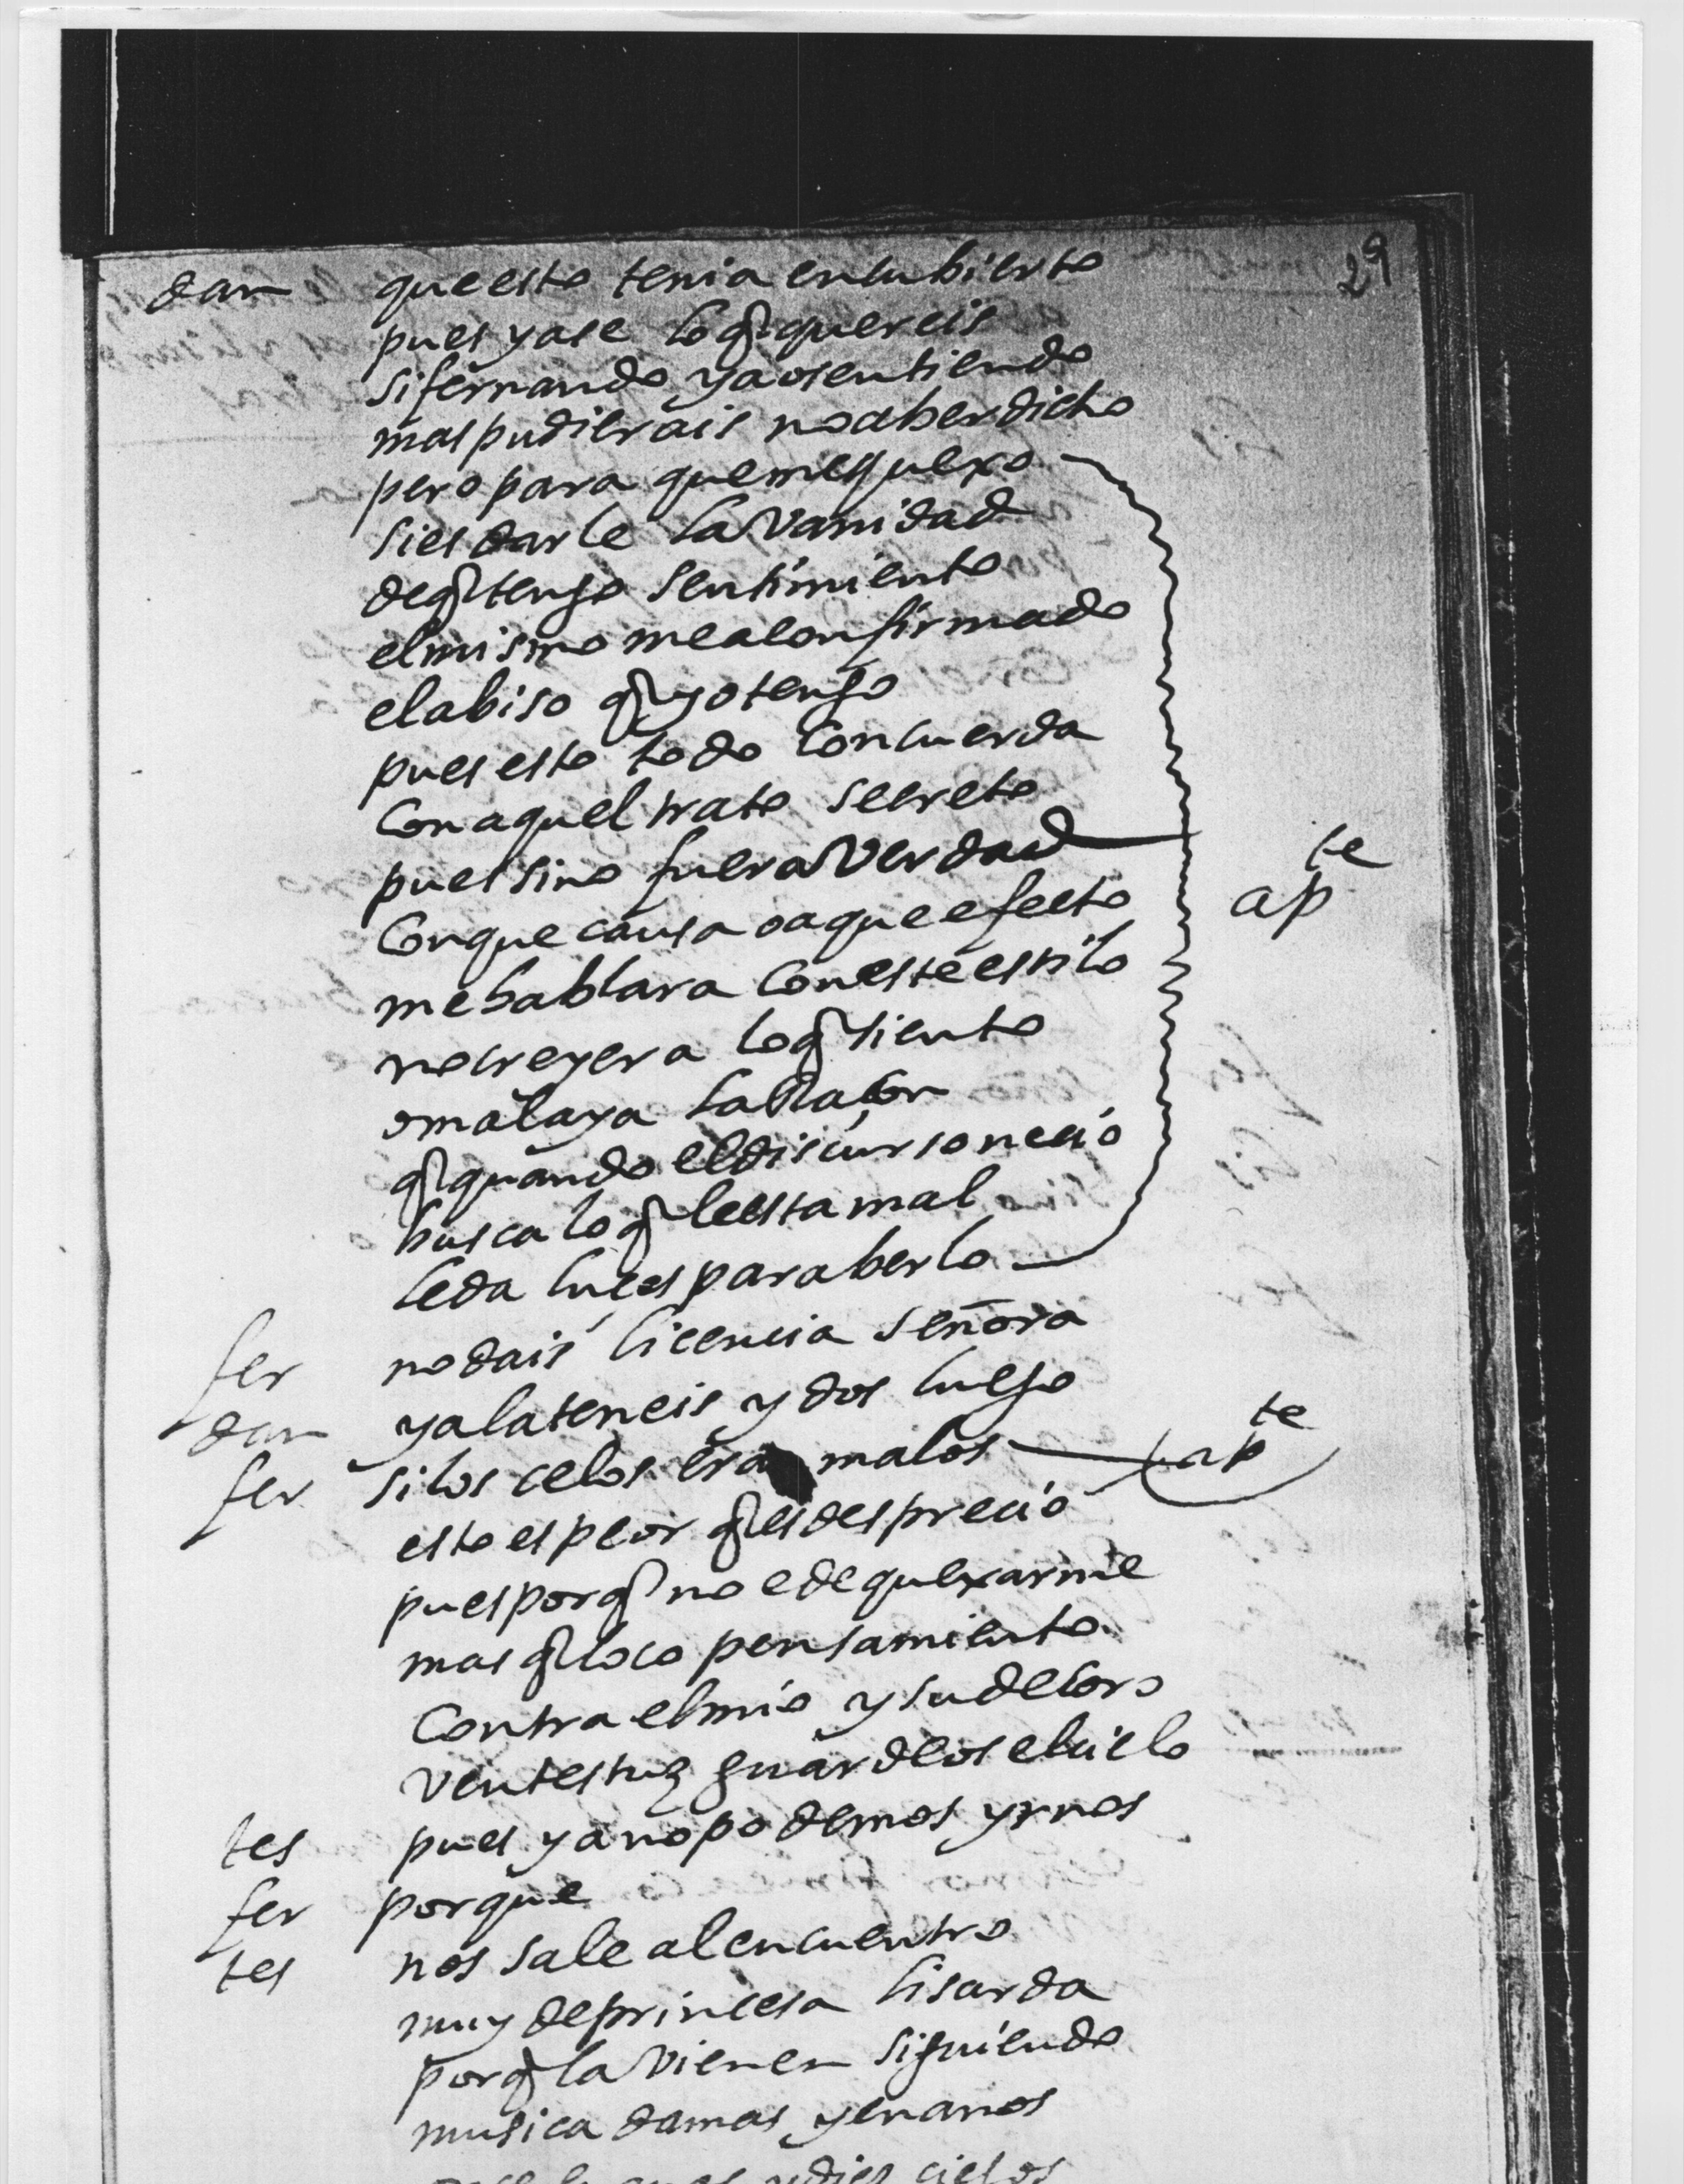 29
dan que esto tenia encubierto
pues ya se lo q quereis
si fernando ya os entiendo
mas pudierais no aber dicho
pero para que me quexo
si es darle la vanidad
de q tengo sentimiento
el mismo me a confirmado
el abiso q yo tengo
pues esto todo concuerda
con aquel trato secreto
pues sino fuera verdad
con que causa o a que efecto
apte
me hablara con este estilo
no creyera lo q siento
o mal aya la Raçon
q quando el discurso necio
busca lo q le esta mal
le da luçes para berlo
fer no dais licencia señora
dan ya la teneis y dos luego
fer si los celos era malos apte
esto es peor q es desprecio
pues porq no e de quexarme
mas q loco pensamiento
contra el mio y su decoro
vente guardeos el cielo
tes pues ya no podemos yrnos
fer porque
tes nos sale al encuentro
muy de princesa lisarda
porq la vienen siguiendo
musica damas y enanos